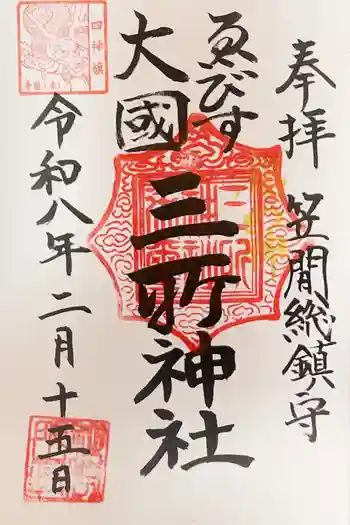 奉拝 笠間総鎮守
ゑびす
大國
三所神社
令和八年二月十五日
四神嬢